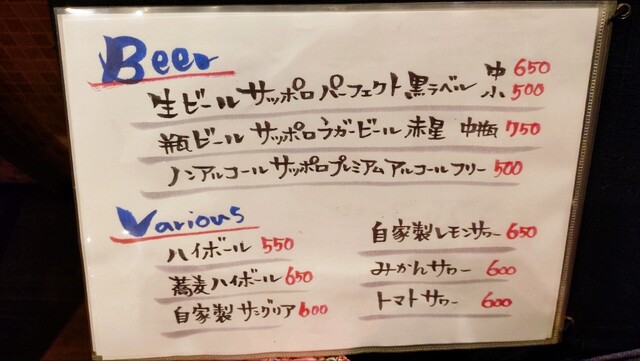 Beer
生ビール サッポロ パーフェクト黒ラベル 中 650
小 500
瓶ビール サッポロラガービール 赤星 中瓶 750
ノンアルコール サッポロプレミアムアルコールフリー 500
Various
ハイボール 550
蕎麦ハイボール 650
自家製サングリア 600
自家製レモンサワー 650
みかんサワー 600
トマトサワー 600